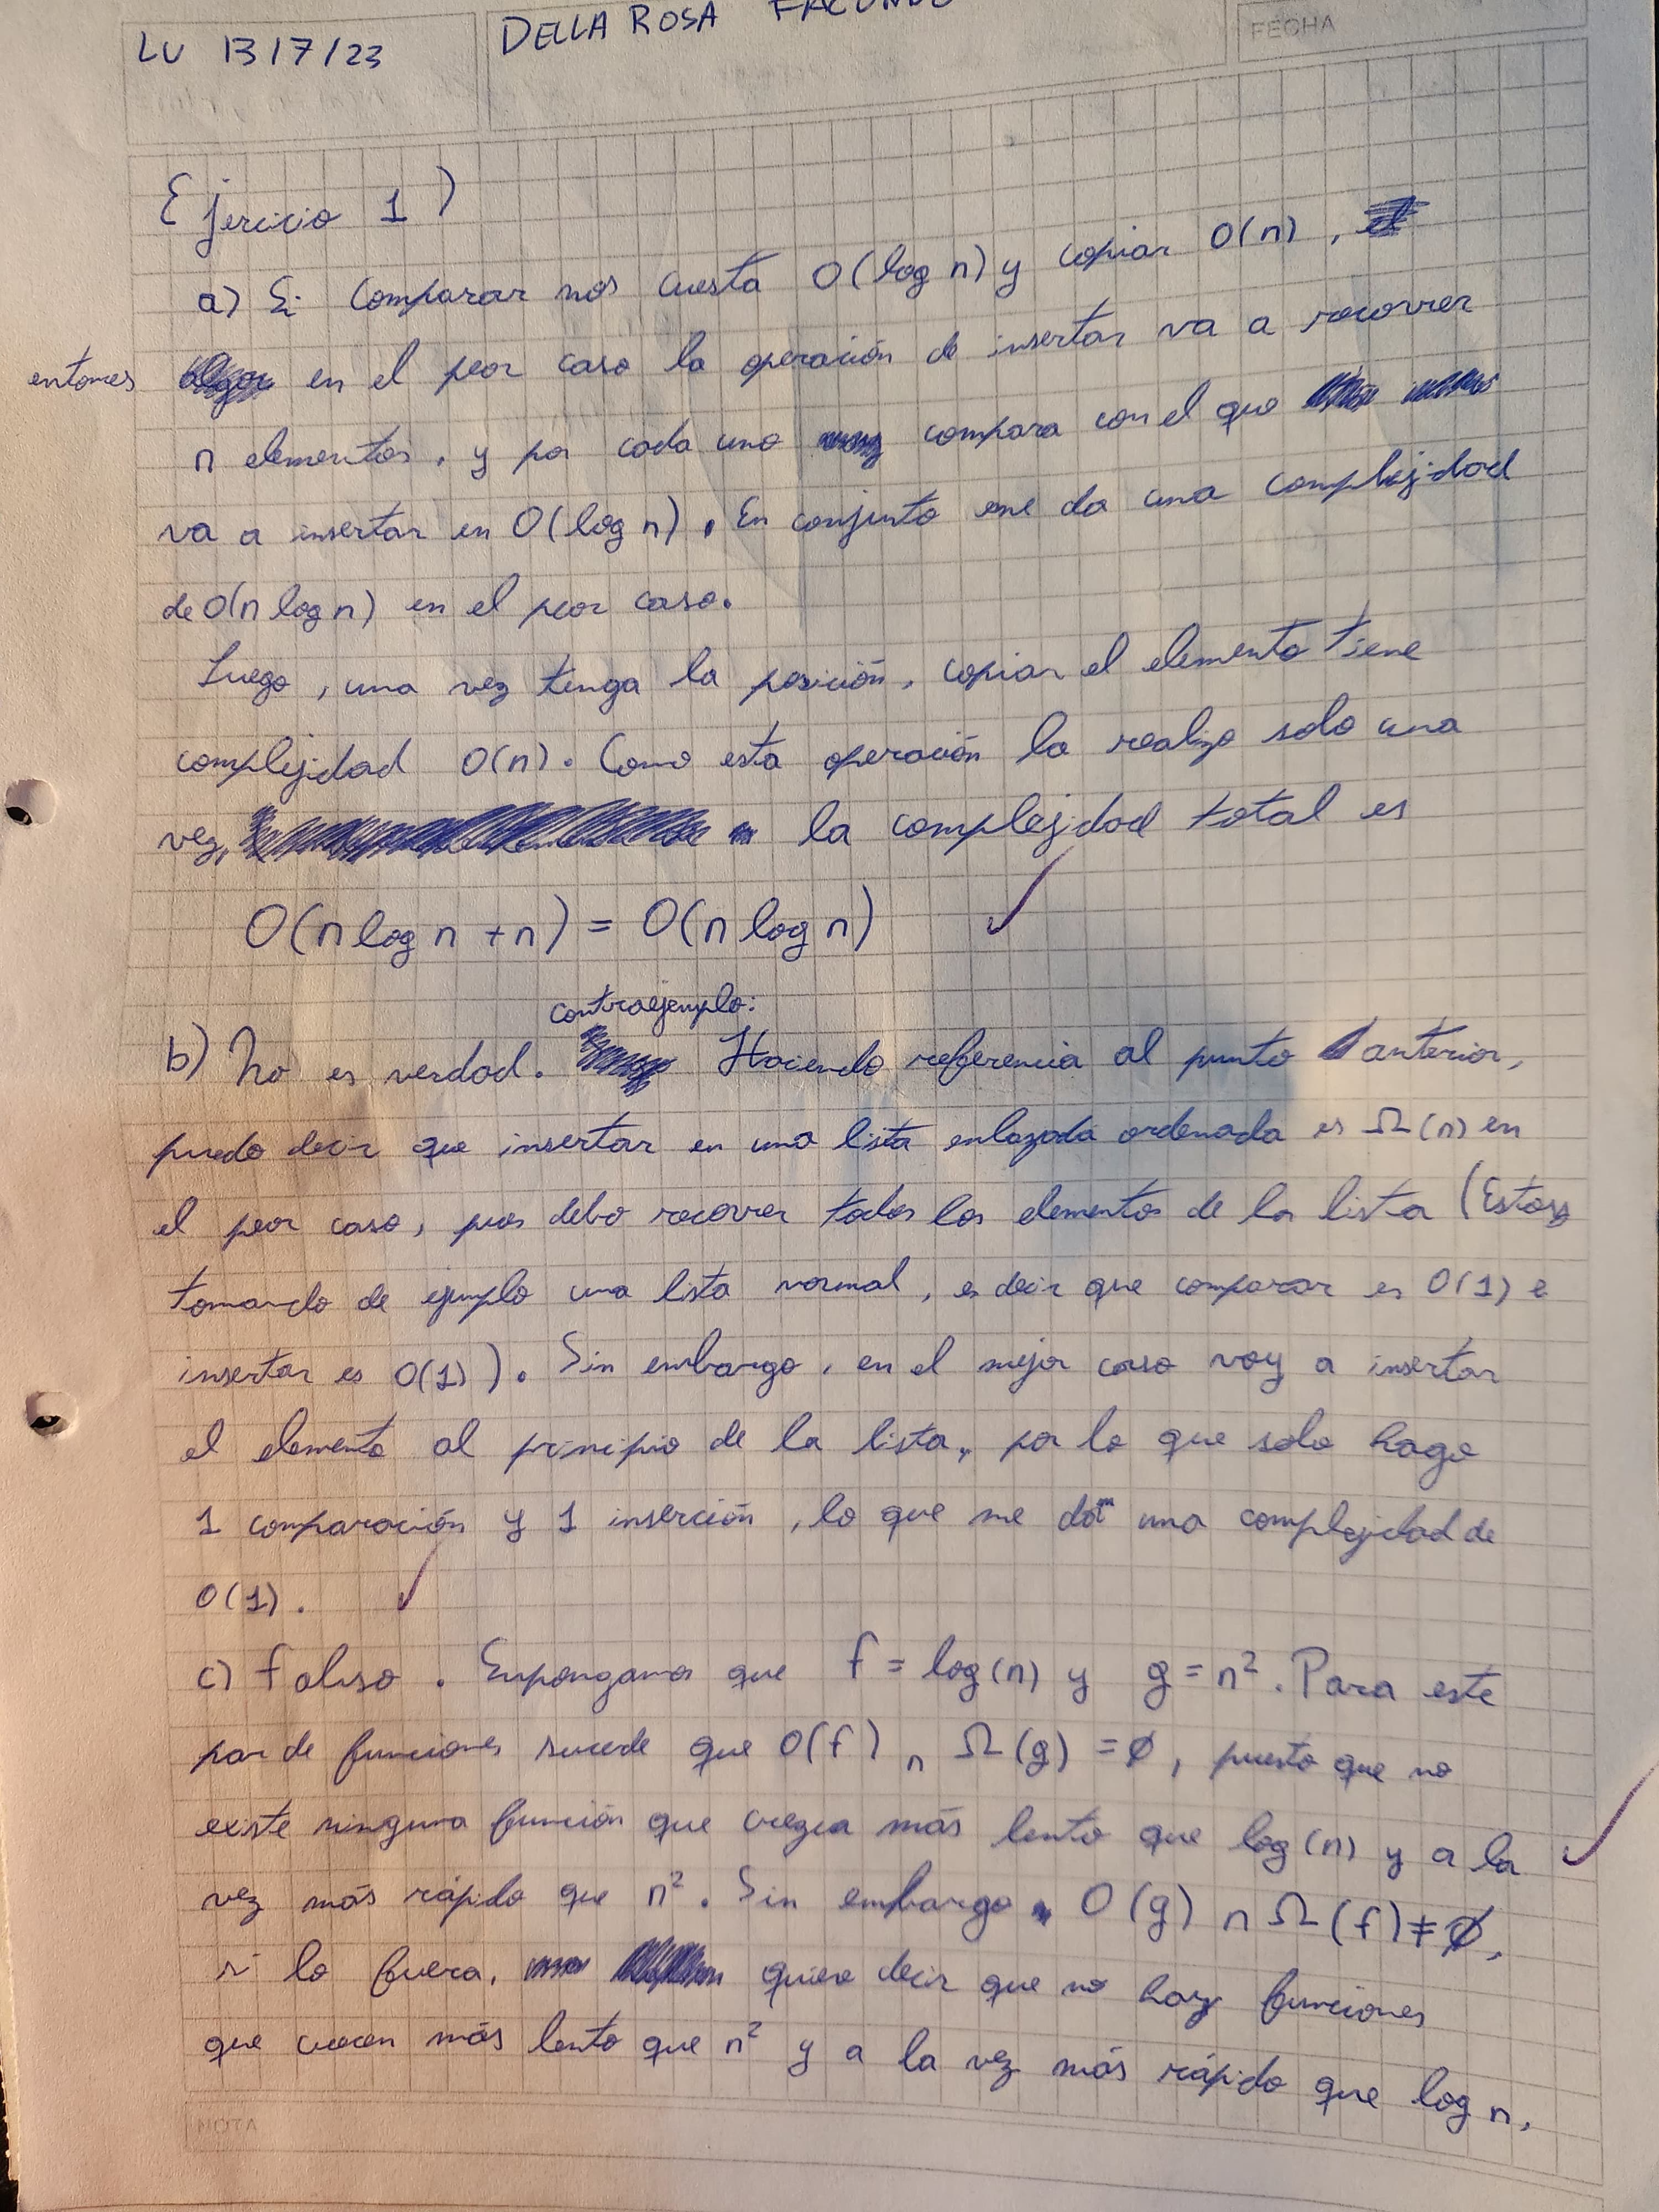 LU 1317/23
DELLA ROSA FACUNDO
FECHA
Ejercicio 1)
a) Si comparar nos cuesta O(log n) y copiar O(n),
entonces en el peor caso la operación de insertar va a recorrer
n elementos, y por cada uno compara con el que
va a insertar en O(log n). En conjunto me da una complejidad
de O(n log n) en el peor caso.
Luego, una vez tenga la posición, copiar el elemento tiene
complejidad O(n). Como esta operación la realizo solo una
vez, la complejidad total es
O(n log n + n) = O(n log n)
contraejemplo:
b) No es verdad. Haciendo referencia al punto anterior,
puedo decir que insertar en una lista enlazada ordenada es Ω(n) en
el peor caso, pues debo recorrer todos los elementos de la lista (Estoy
tomando de ejemplo una lista normal, es decir que comparar es O(1) e
insertar es O(1)). Sin embargo, en el mejor caso voy a insertar
el elemento al principio de la lista, por lo que solo hago
1 comparación y 1 inserción, lo que me da una complejidad de
O(1).
c) Falso. Supongamos que f = log(n) y g = n². Para este
par de funciones sucede que O(f) ∩ Ω(g) = ∅, puesto que no
existe ninguna función que crezca más lento que log(n) y a la
vez más rápido que n². Sin embargo O(g) ∩ Ω(f) ≠ ∅,
si lo fuera, quiere decir que no hay funciones
que crecen más lento que n² y a la vez más rápido que log n.
NOTA